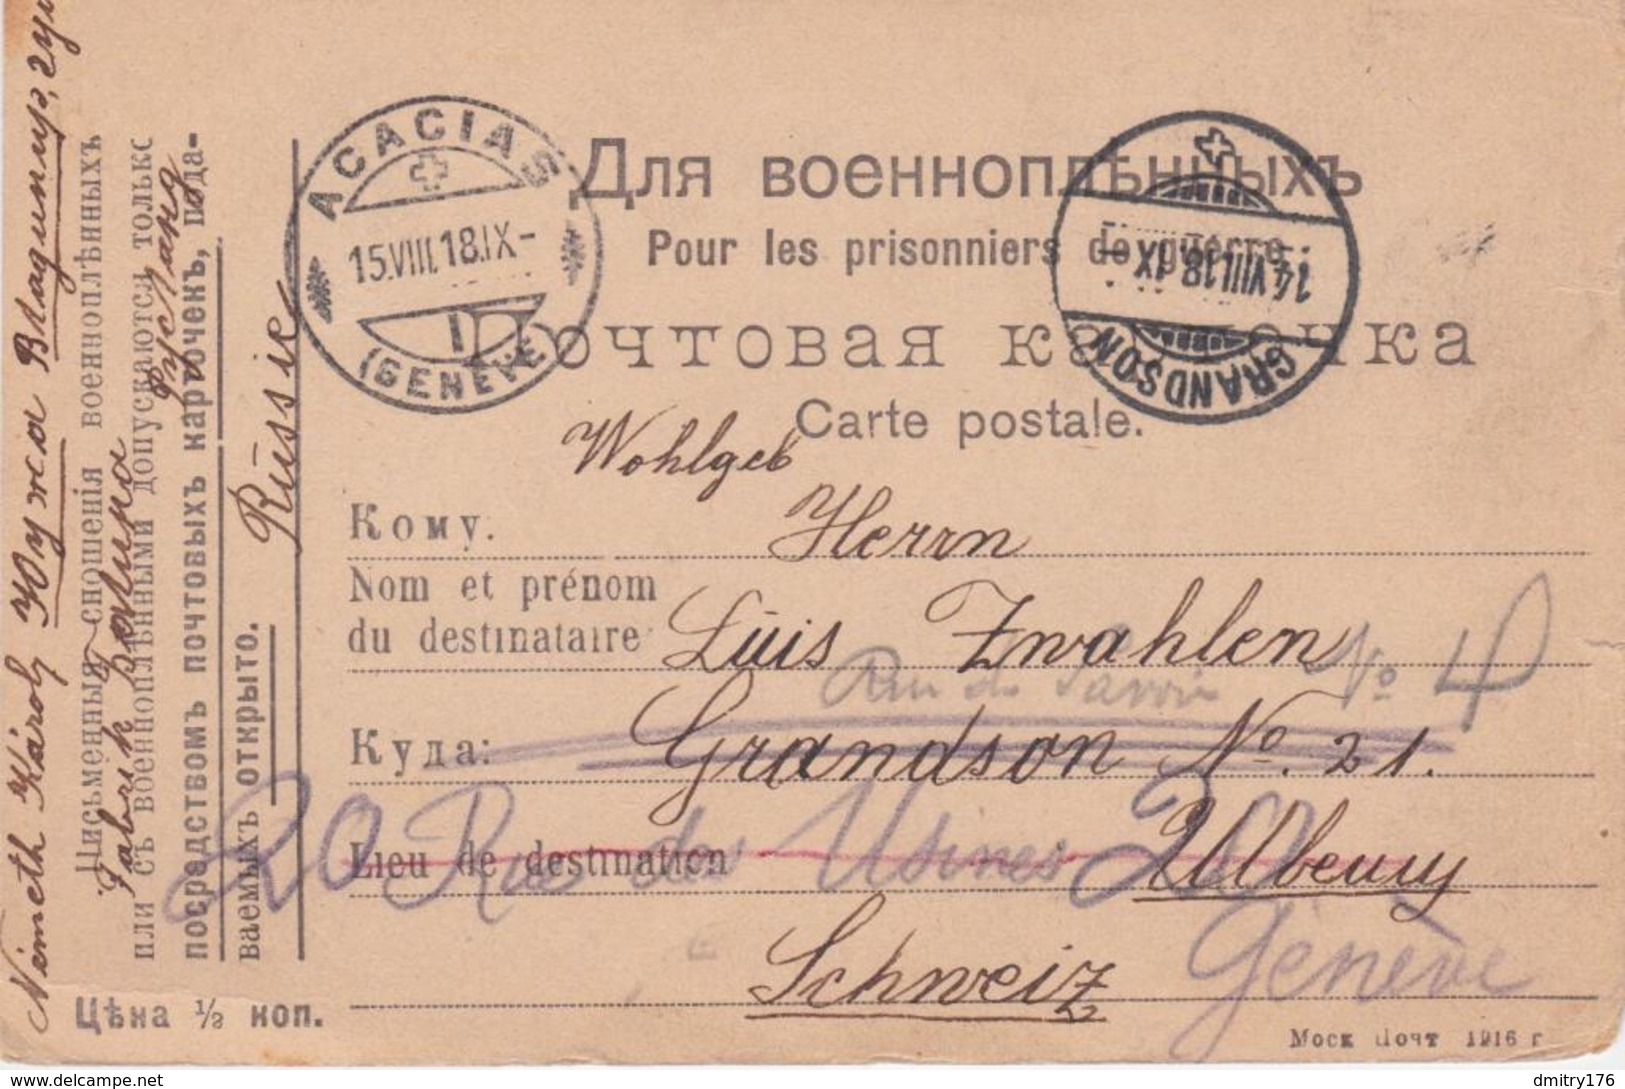 Для военноплѣнныхъ
Pour les prisonniers de guerre.
Почтовая карточка
Carte postale.
ACACIAS
15.VIII.18.IX-
1
(GENÈVE)
14.VIII.18.IX
GRANDSON
Wohlgeb
Кому. Herrn
Nom et prénom
du destinataire Luis Zwahlen
Rue de Savoie No 4
Куда: Grandson No. 21.
20 Rue des Usines 20
Lieu de destination
Schweiz
Genève
Németh Károly Южа Владимир,
Fabrik
Russie
Письменныя сношенія военноплѣнныхъ
или съ военноплѣнными допускаются только
посредствомъ почтовыхъ карточекъ, пода-
ваемыхъ открыто.
Цѣна ½ коп.
Моск Почт 1916 г
dmitry176